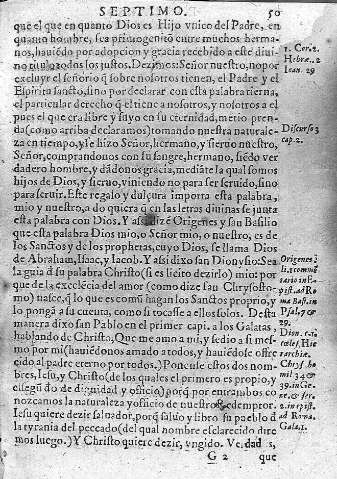 SEPTIMO. 50
que el que en quanto Dios es Hijo vnico del Padre, en
quanto hombre, sea primogenito entre muchos herma-
nos, hauiēdo por adopcion y gracia recebido a este diui-
no titulo todos los justos. Dezimos: Señor nuestro, no por
excluyr el señorio q̄ sobre nosotros tienen, el Padre y el
Espiritu sancto, sino por declarar con esta palabra tierna,
el particular derecho q̄ el tiene a nosotros, y nosotros a el
pues el que era libre y suyo en su eternidad, metio pren-
da (como arriba declaramos) tomando nuestra naturale-
za en tiempo, y se hizo Señor, hermano, y sieruo nuestro,
Señor, comprandonos con su sangre, hermano, siēdo ver
dadero hombre, y dādonos gracia, mediāte la qual somos
hijos de Dios, y sieruo, viniendo no para ser seruido, sino
para seruir. Este regalo y dulçura importa esta palabra,
mio y nuestro, o do quiera q̄ en las letras diuinas se junta
esta palabra con Dios. Y assi dizē Origenes y san Basilio
que esta palabra Dios mio, o Señor mio, o nuestro, es de
los Sanctos y de los prophetas, cuyo Dios, se llama Dios
de Abraham, Isaac, y Iacob. Y assi dixo san Dionysio: Sea
la guia d̄ su palabra Christo (si es licito dezirlo) mio: por
que de la excelēcia del amor (como dize san Chrysosto-
mo) nasce, q̄ lo que es comū hagan los Sanctos proprio, y
lo pongā a su cuenta, como si tocasse a ellos solos. Desta
manera dixo san Pablo en el primer capi. a los Galatas,
hablando de Christo, Que me amo a mi, y se dio a si mes-
mo por mi (hauiēdonos amado a todos, y hauiēdose offre
cido al padre eterno por todos.) Ponense estos dos nom-
bres, Iesu, y Christo (de los quales el primero es proprio, y
el segūdo de dignidad y officio) porq̄ por entrambos co
nozcamos la naturaleza y officio de nuestro Redemptor.
Iesu quiere dezir saluador, porq̄ saluo y libro su pueblo d̄
la tyrania del peccado (del qual nombre esclarecido dire
mos luego.) Y Christo quiere dezir, vngido.
G 2 que
1. Cor. 2.
Hebre. 2
Ioan. 29
Discurso 3
cap. 2.
Psal. 7 &
29.
Galat. 1.